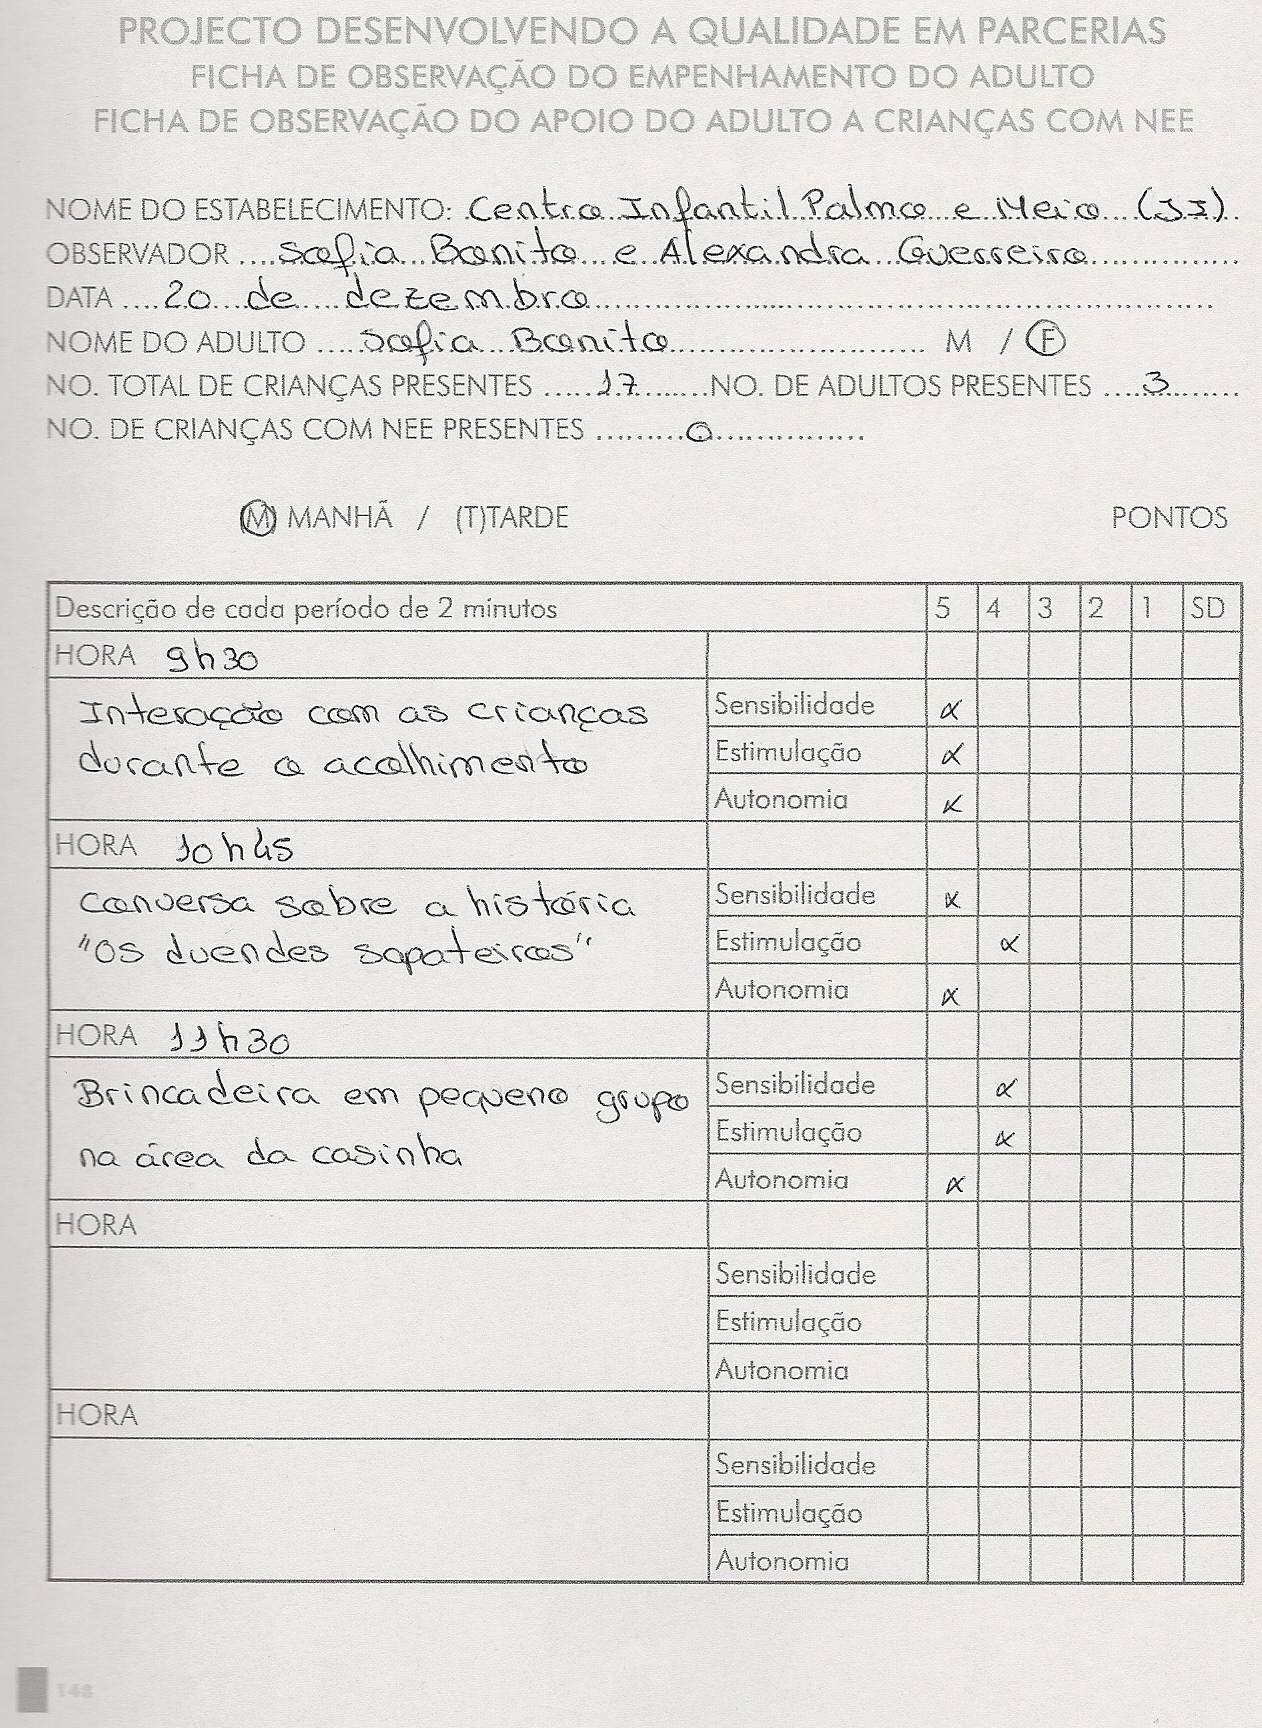 PROJECTO DESENVOLVENDO A QUALIDADE EM PARCERIAS
FICHA DE OBSERVAÇÃO DO EMPENHAMENTO DO ADULTO
FICHA DE OBSERVAÇÃO DO APOIO DO ADULTO A CRIANÇAS COM NEE
NOME DO ESTABELECIMENTO: Centro Infantil Palmo e Meio (JI)
OBSERVADOR Sofia Bonito e Alexandra Guerreiro
DATA 20 de dezembro
NOME DO ADULTO Sofia Bonito M / F
NO. TOTAL DE CRIANÇAS PRESENTES 17 NO. DE ADULTOS PRESENTES 3
NO. DE CRIANÇAS COM NEE PRESENTES 0
(M) MANHÃ / (T)TARDE PONTOS
Descrição de cada período de 2 minutos 5 4 3 2 1 SD
HORA 9h30
Interação com as crianças
durante o acolhimento
Sensibilidade x
Estimulação x
Autonomia x
HORA 10h45
Conversa sobre a história
"Os duendes sapateiros"
Sensibilidade x
Estimulação x
Autonomia x
HORA 11h30
Brincadeira em pequeno grupo
na área da casinha
Sensibilidade x
Estimulação x
Autonomia x
HORA
Sensibilidade
Estimulação
Autonomia
HORA
Sensibilidade
Estimulação
Autonomia
148